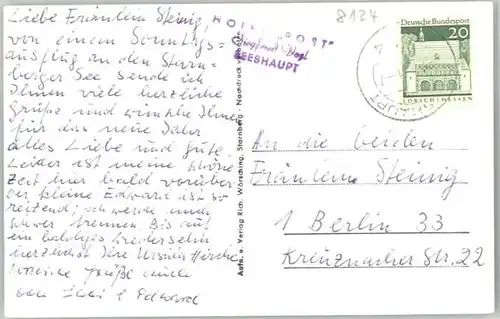 Liebe Fräulein Steinig,
von einem Sonntags-
ausflug an den Starn-
berger See sende ich
Ihnen viele herzliche
Grüße und wünsche Ihnen
für das neue Jahr
alles Liebe und Gute
Leider ist meine schöne
Zeit hier bald vorüber
der kleine Edward ist so
reizend; ich werde mich
schwer trennen. Bis auf
ein baldiges Wiedersehn
herzlichst Ihre Ursula
Grüße auch
von & Edward
HOTEL POST
SEESHAUPT
8124
Deutsche Bundespost
20
LORSCH/HESSEN
Aufn. u. Verlag Rich. Wörsching, Starnberg - Nachdruck verboten
An die beiden
Fräulein Steinig
1 Berlin 33
Kreuznacher Str. 22